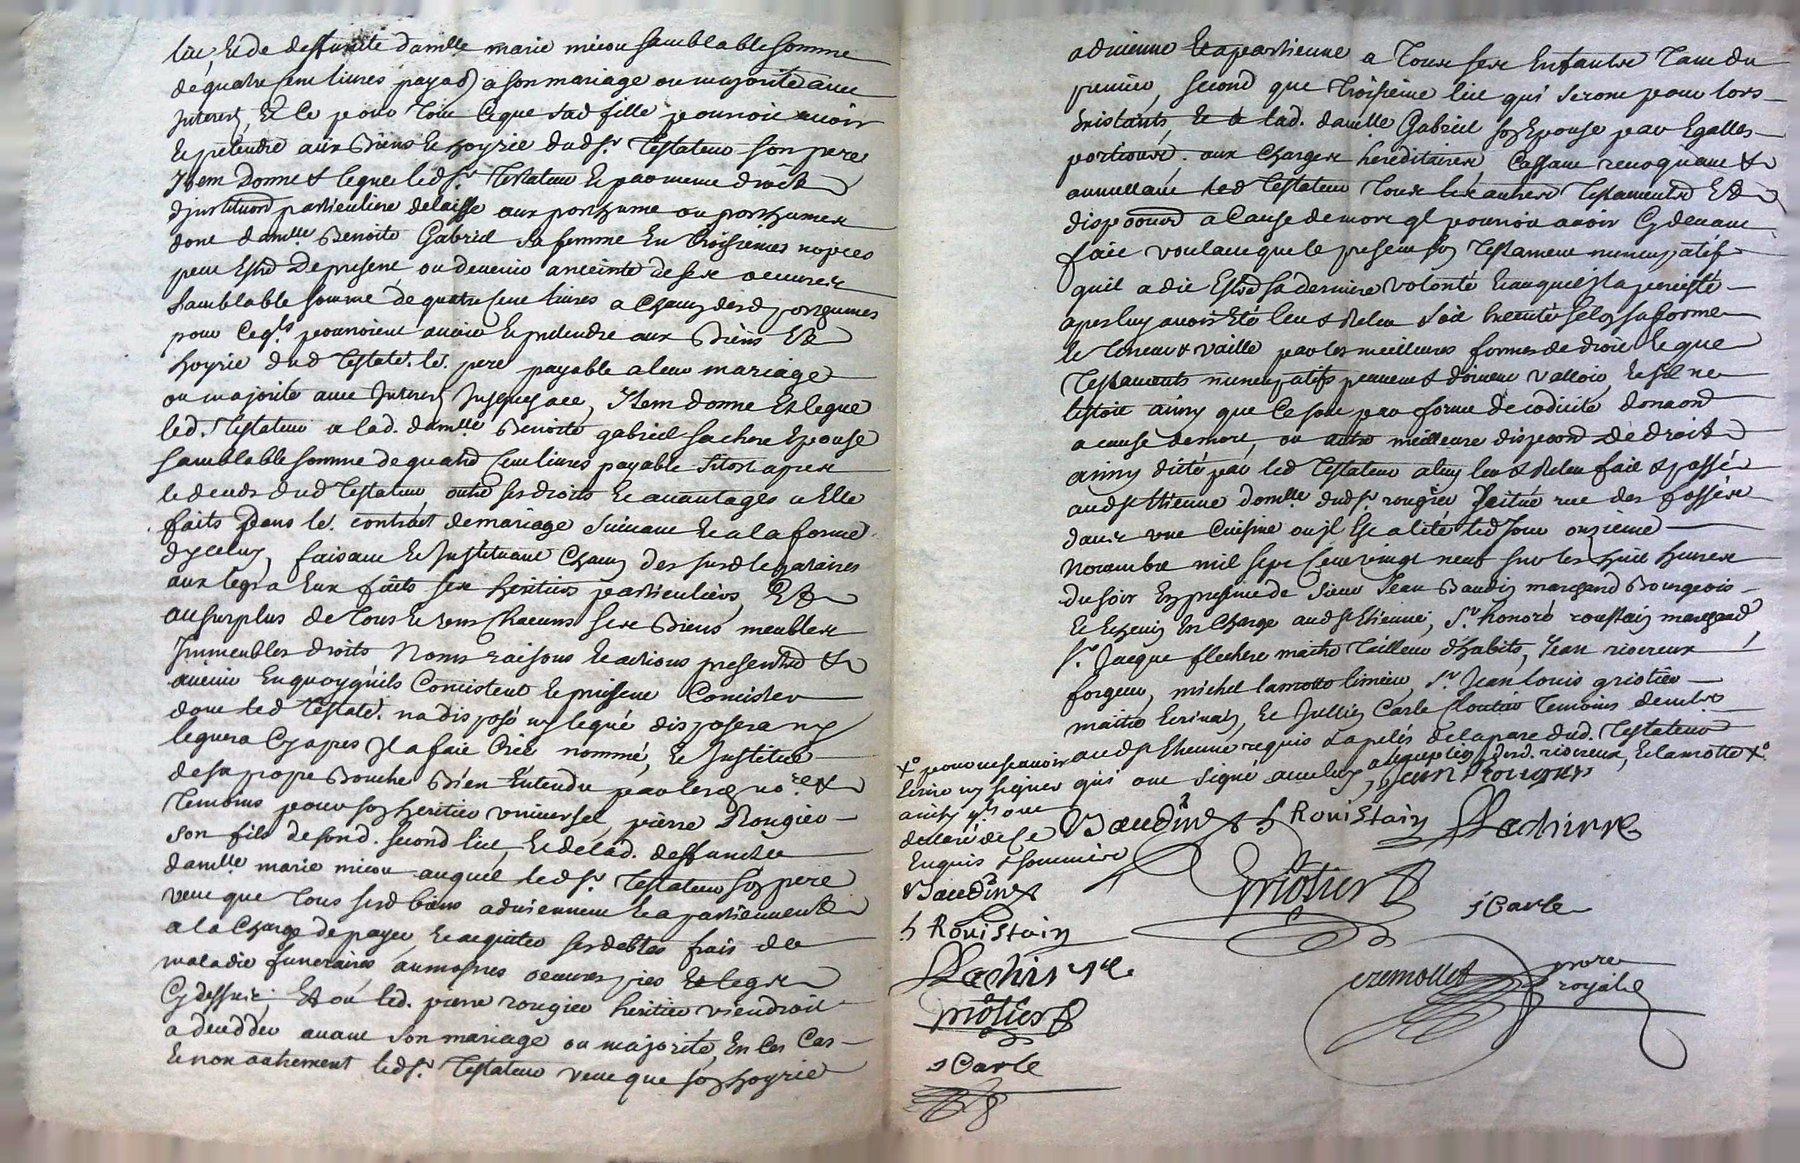 lit, et de deffunte damlle marie micou samblable somme
de quatre cent livres payab) a son mariage ou majorité avec
Interest, Et ce pour tout ce que sad fille pourroit avoir
et prétendre aux Biens et hoyrie dud sr Testateur son pere
Item Donne & legue led sr Testateur et par meme droit
d'institu'on particuliere delaisse aux posthume ou posthumes
dont damlle Benoite Gabriel sa femme En troisiemes nopces
peut Estre de present ou devenir anceinte de ses oeuvres
samblable somme de quatre cent livres a chacun desd posthumes
pour ce qls pourroient avoir et prétendre aux Biens Et
hoyrie dud Testatr. le. pere payable a leur mariage
ou majorité avec Interest Jusques ace, Item donne Et legue
led. Testateur a lad. damlle Benoite gabriel sa chere Epouse
samblable somme de quatre Cent livres payable sitost apres
le deceds dud Testateur, outre ses droits et avantages a Elle
faits dans le. contract de mariage suivant et a la forme
d'yceluy, faisant et Instituant chacun des susd legataires
aux legs a Eux faits ses heritiers particuliers, Et
au surplus de tous et uns chacuns ses Biens meubles
Immeubles droits Noms raisons et actions presents &
avenir En quoy qu'ils Concistent et puissent Concister
dont led Testatr. na disposé ny legué disposera ny
leguera Cy apres Il a fait Créé nommé, et Institué
de sa propre Bouche Bien Entendu par lesd nore &
Temoins pour son heritier universel, pierre Rougier
son fils de sond. second lit, et de lad. deffuncte
damlle marie micou auquel led sr. Testateur son pere
veut que tous sesd biens adviennent et apartiennent
a la charge de payer et acquitter ses debtes frais de
maladie funeraires, aumosnes oeuvres pies et legs
Cy dessus; Et ou led. pierre rougier heritier viendroit
a decedder avant son mariage ou majorité, En ces Cas
et non autrement led sr. Testateur veut que son hoyrie
advienne et apartienne a tous ses Enfants tant du
premier, second que troisieme lit qui seront pour lors
Existants et a lad. damlle Gabriel son Epouse par Egalles
portions. aux charges hereditaires, Cassant revoquant &
annullant led Testateur tous les autres Testaments Et
dispo'ons a Cause de mort ql pourroit avoir Cy devant
fait voulant que le present son Testament nuncupatif
quil a dit Estre sa derniere volonté et auquel Il a percisté
apres luy avoir Eté leu & Releu soit Executé selon sa forme
et teneur & vaille par les meilleures formes de droit et que
Testaments nuncupatifs peuvent & doivent valloir, et sil ne
l'estoit ainsy que ce soit par forme de codicile dona'on
a cause de mort, ou autre meilleure dispo'on de droit
ainsy dicté par led Testateur a luy leu & Releu fait & passé
aud St Etienne domlle. dud sr. rougier Scitué rue des fossés
dans une Cuisine ou Il Est alité led Jour onzieme
Novembre mil sept Cent vingt neuf sur les huit heures
du soir En presence de sieur Jean Baudin marchand Bourgeois
et Echevin En Charge aud St Etienne, sr. honoré roustain marchand
sr. Jacque flechere maitre tailleur d'habits, Jean rivereux
forgeur, michel lamotte limeur, sr. Jean louis griotier
maitre Ecrivain, et Jullien Carle Cloutier Temoins demts
aud St Etienne requis & apelés de la part dud. Testateur
qui ont signé avec luy, a l'exception desd. rivereux, et lamotte X°
X° pour ne scavoir
Ecrire ny signer
ainsy qls. ont
declaré de ce
Enquis & sommés
Jean Rougier
Baudin & h Rouistain flachirre
Griotier
J Carle
Baudin
h Rouistain
flachirre
Griotier
J Carle
cremollet nore
royal